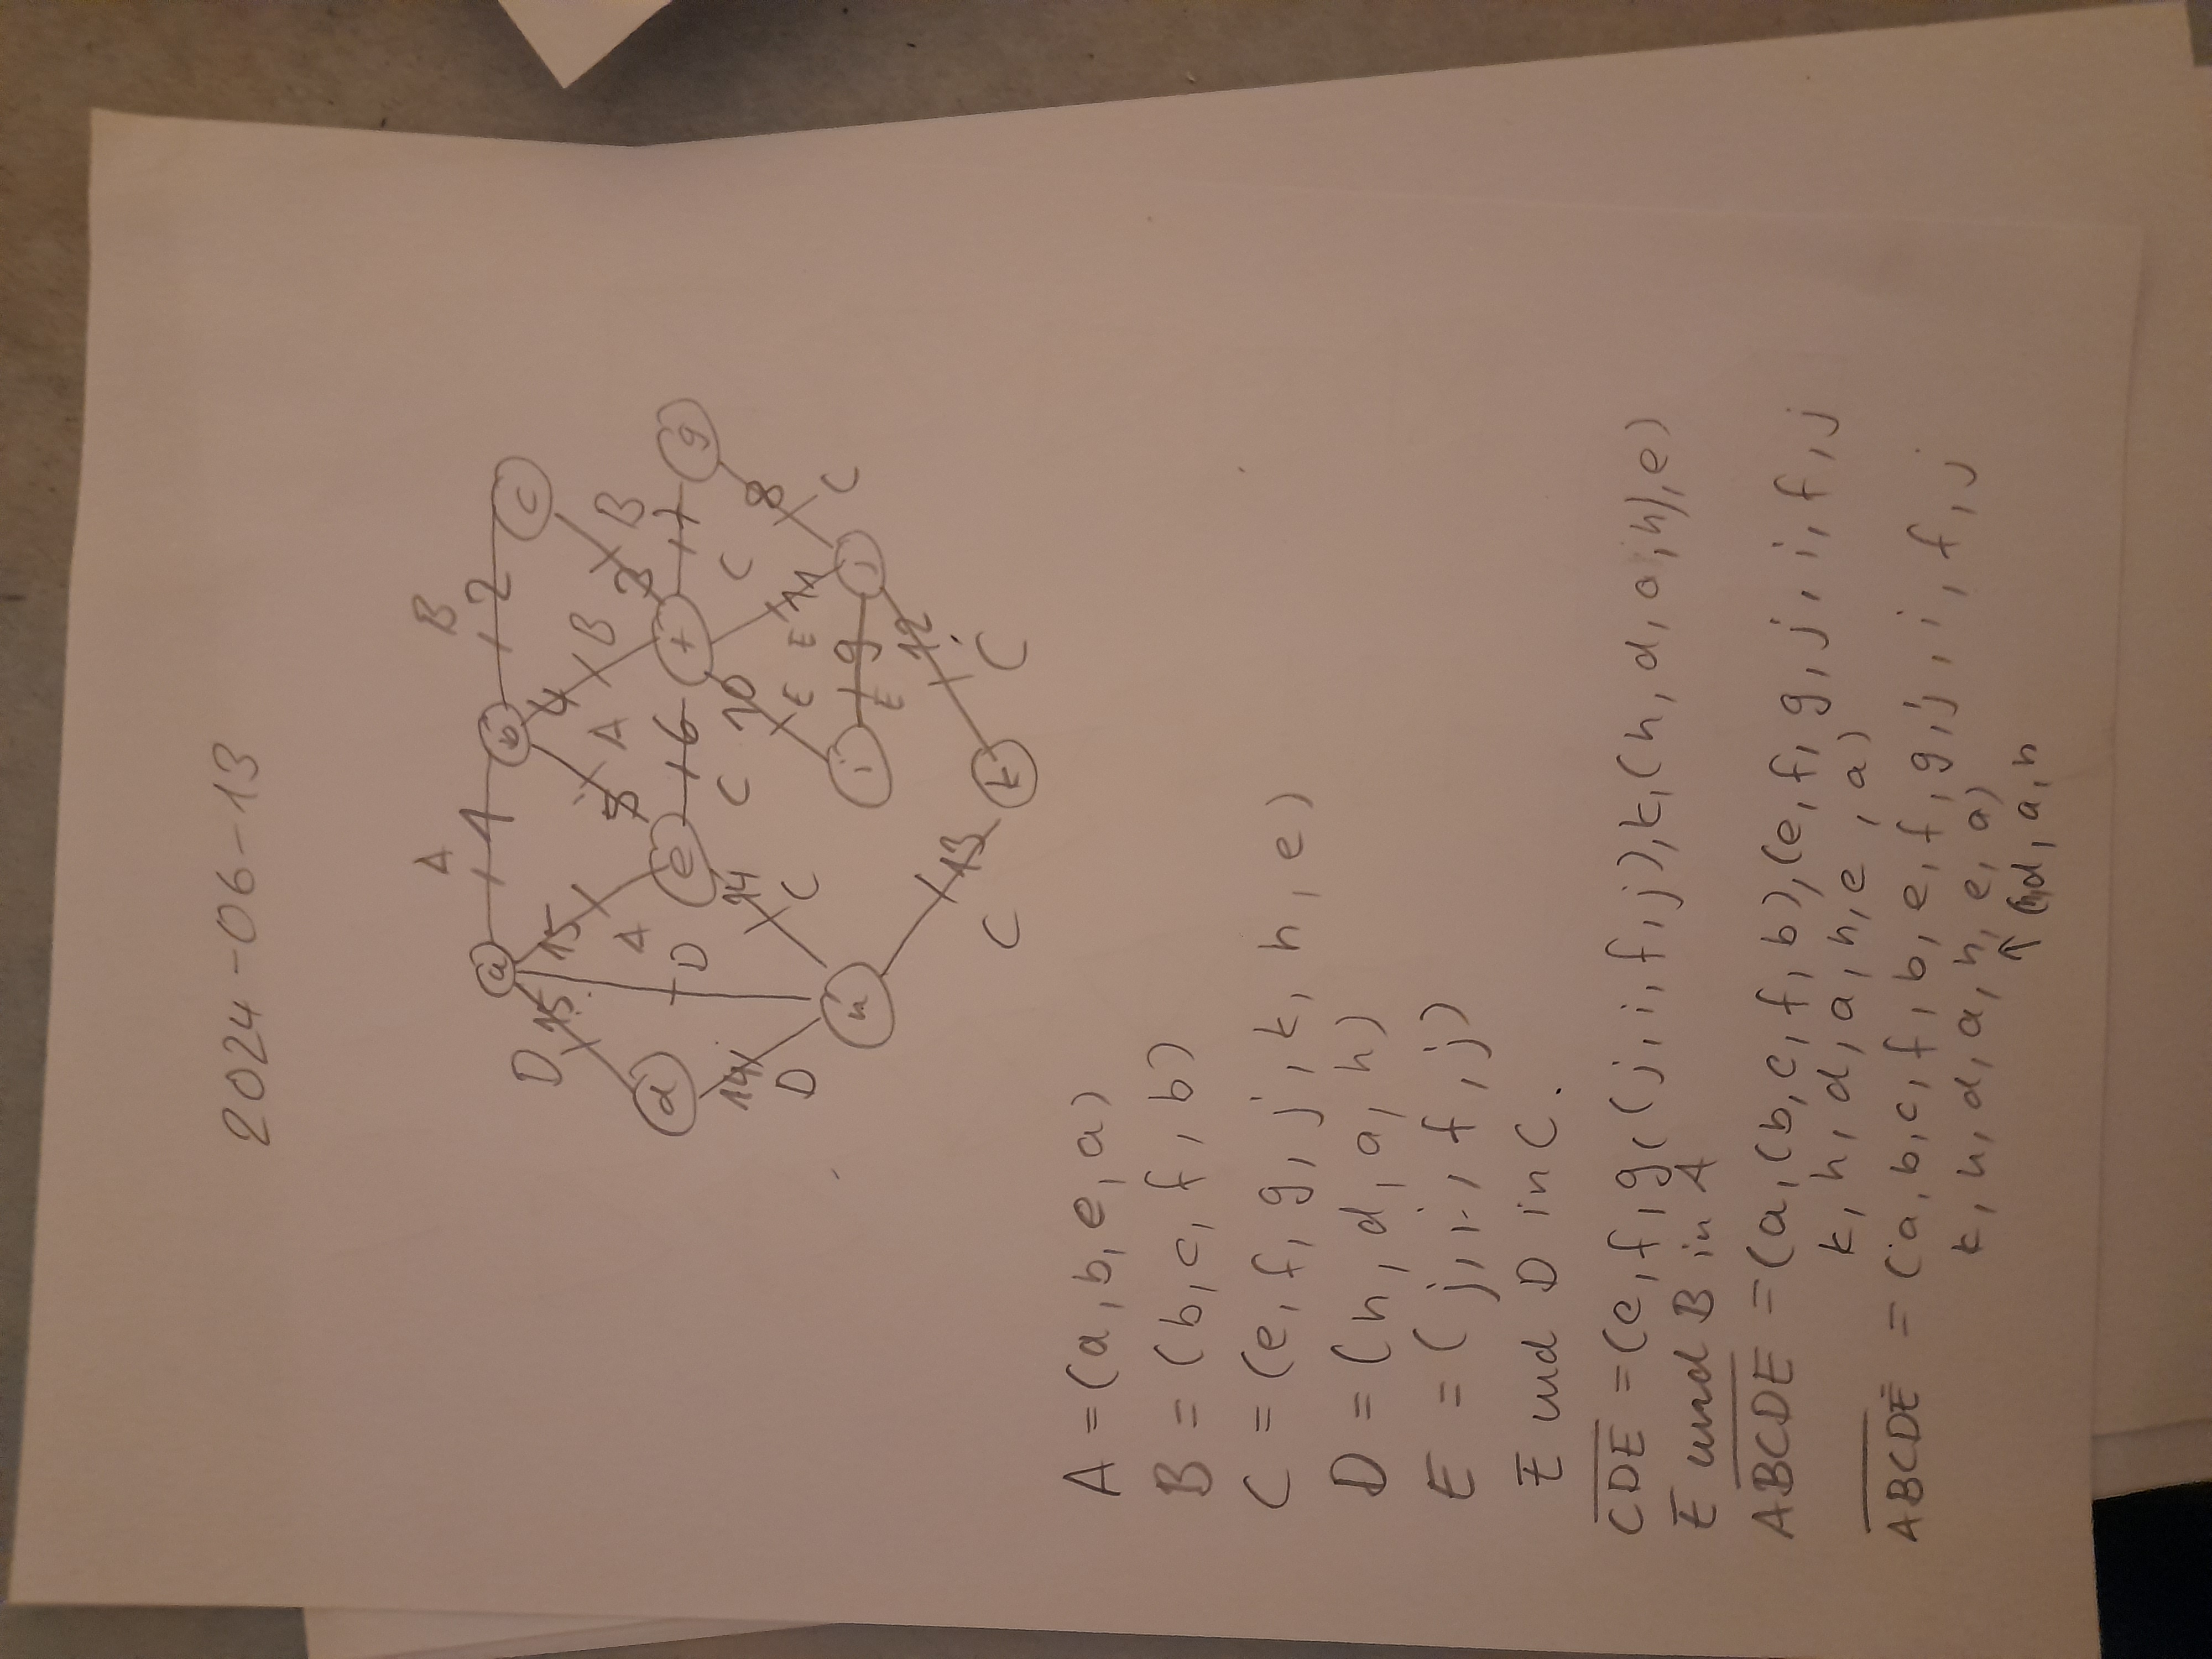 2024-06-13
A
B
a
1
b
2
c
D
15
15
A
D
5
A
4
B
3
B
d
e
6
f
7
g
14
D
14
C
C
10
E
E
11
C
8
C
h
i
9
E
j
13
C
k
12
C
A = (a, b, e, a)
B = (b, c, f, b)
C = (e, f, g, j, k, h, e)
D = (h, d, a, h)
E = (j, i, f, j)
E und D in C.
CDE = (e, f, g, (j, i, f, j), k, (h, d, a, h), e)
E und B in A
ABCDE = (a, (b, c, f, b), (e, f, g, j, i, f, j
k, h, d, a, h, e, a)
ABCDE = (a, b, c, f, b, e, f, g, j, i, f, j
k, h, d, a, h, e, a)
↑ (h, d, a, h